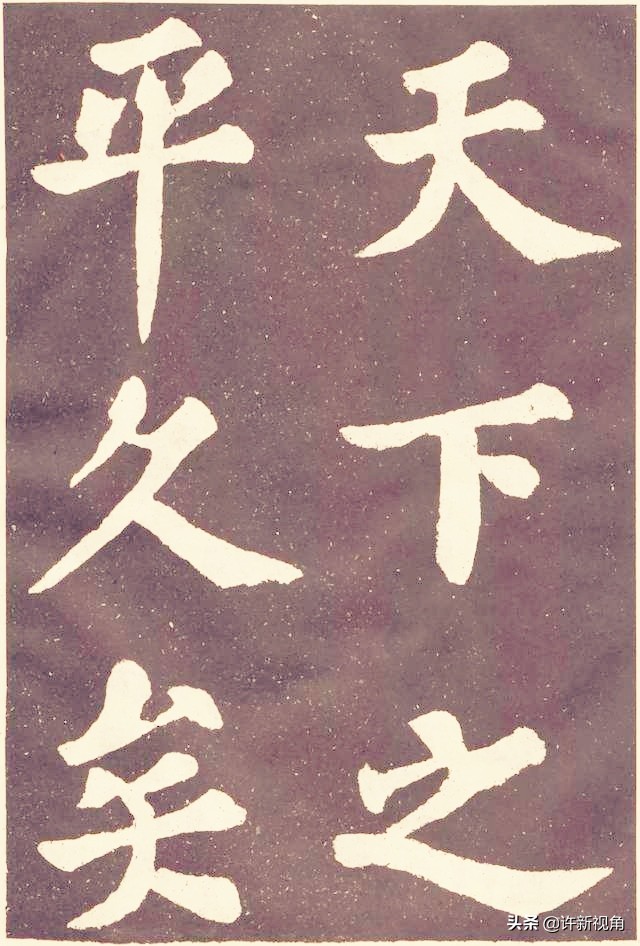 天下之
平久矣
头条 @许新视角